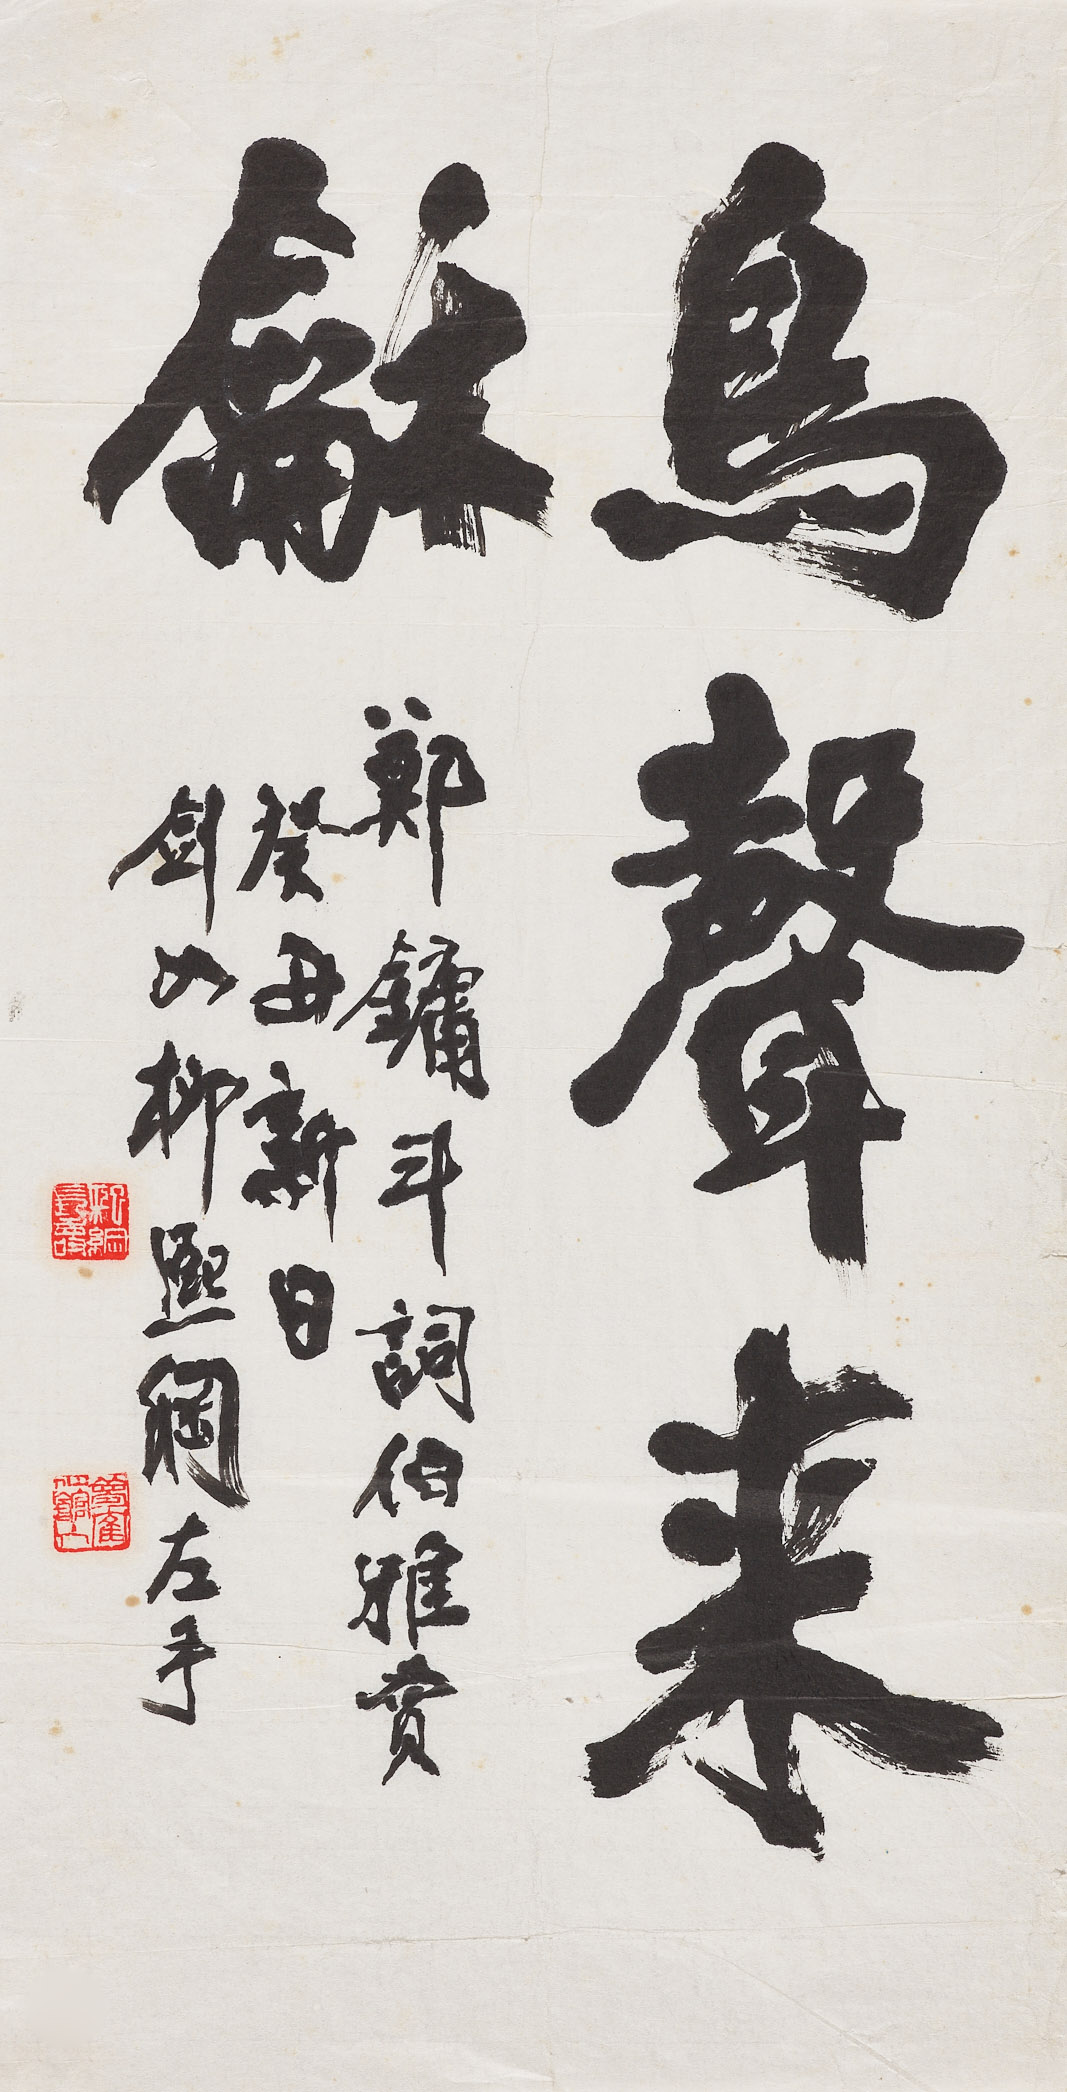 鳥聲来
龢
鄭鏞斗詞伯雅賞
癸丑新日
劍如柳熙綱左手